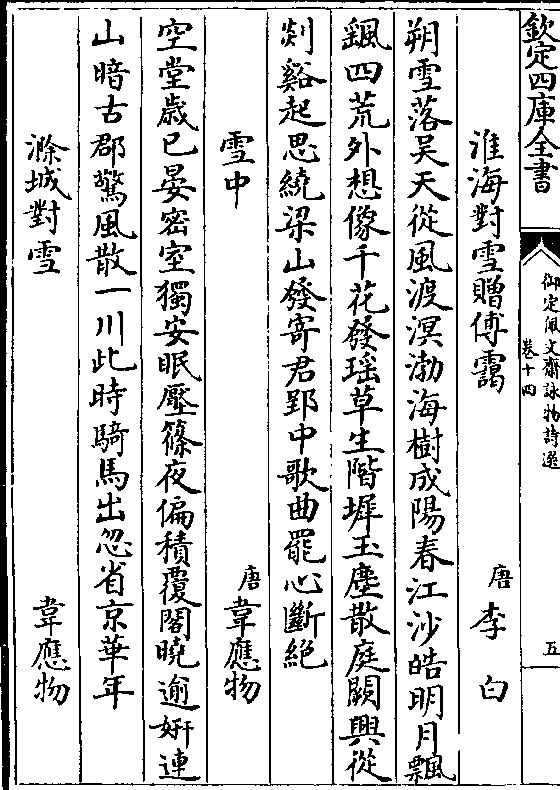 欽定四庫全書
御定佩文齋詠物詩選
卷十四
五
淮海對雪贈傅靄
唐李白
朔雪落吴天從風渡溟渤海樹成陽春江沙皓明月飄
颻四荒外想像千花發瑶草生階墀玉塵散庭闕興從
剡谿起思繞梁山發寄君郢中歌曲罷心斷絶
雪中
唐韋應物
空堂歳已晏密室獨安眠壓篠夜偏積覆閣曉逾妍連
山暗古郡驚風散一川此時騎馬出忽省京華年
滁城對雪
韋應物